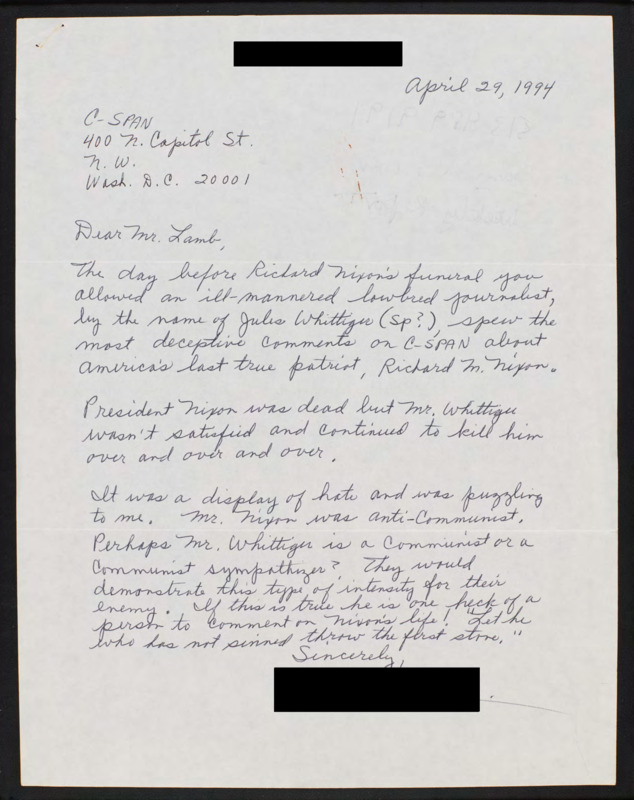 April 29, 1994
C-SPAN
400 N. Capitol St.
N. W.
Wash. D.C. 20001
Dear Mr. Lamb,
The day before Richard Nixon's funeral you
allowed an ill-mannered lowbred journalist,
by the name of Jules Whittiger (Sp?), spew the
most deceptive comments on C-SPAN about
America's last true patriot, Richard M. Nixon.
President Nixon was dead but Mr. Whittiger
wasn't satisfied and continued to kill him
over and over and over.
It was a display of hate and was puzzling
to me. Mr. Nixon was anti-Communist.
Perhaps Mr. Whittiger is a Communist or a
Communist sympathizer? They would
demonstrate this type of intensity for their
enemy. If this is true he is one heck of a
person to comment on Nixon's life! "Let he
who has not sinned throw the first stone."
Sincerely,